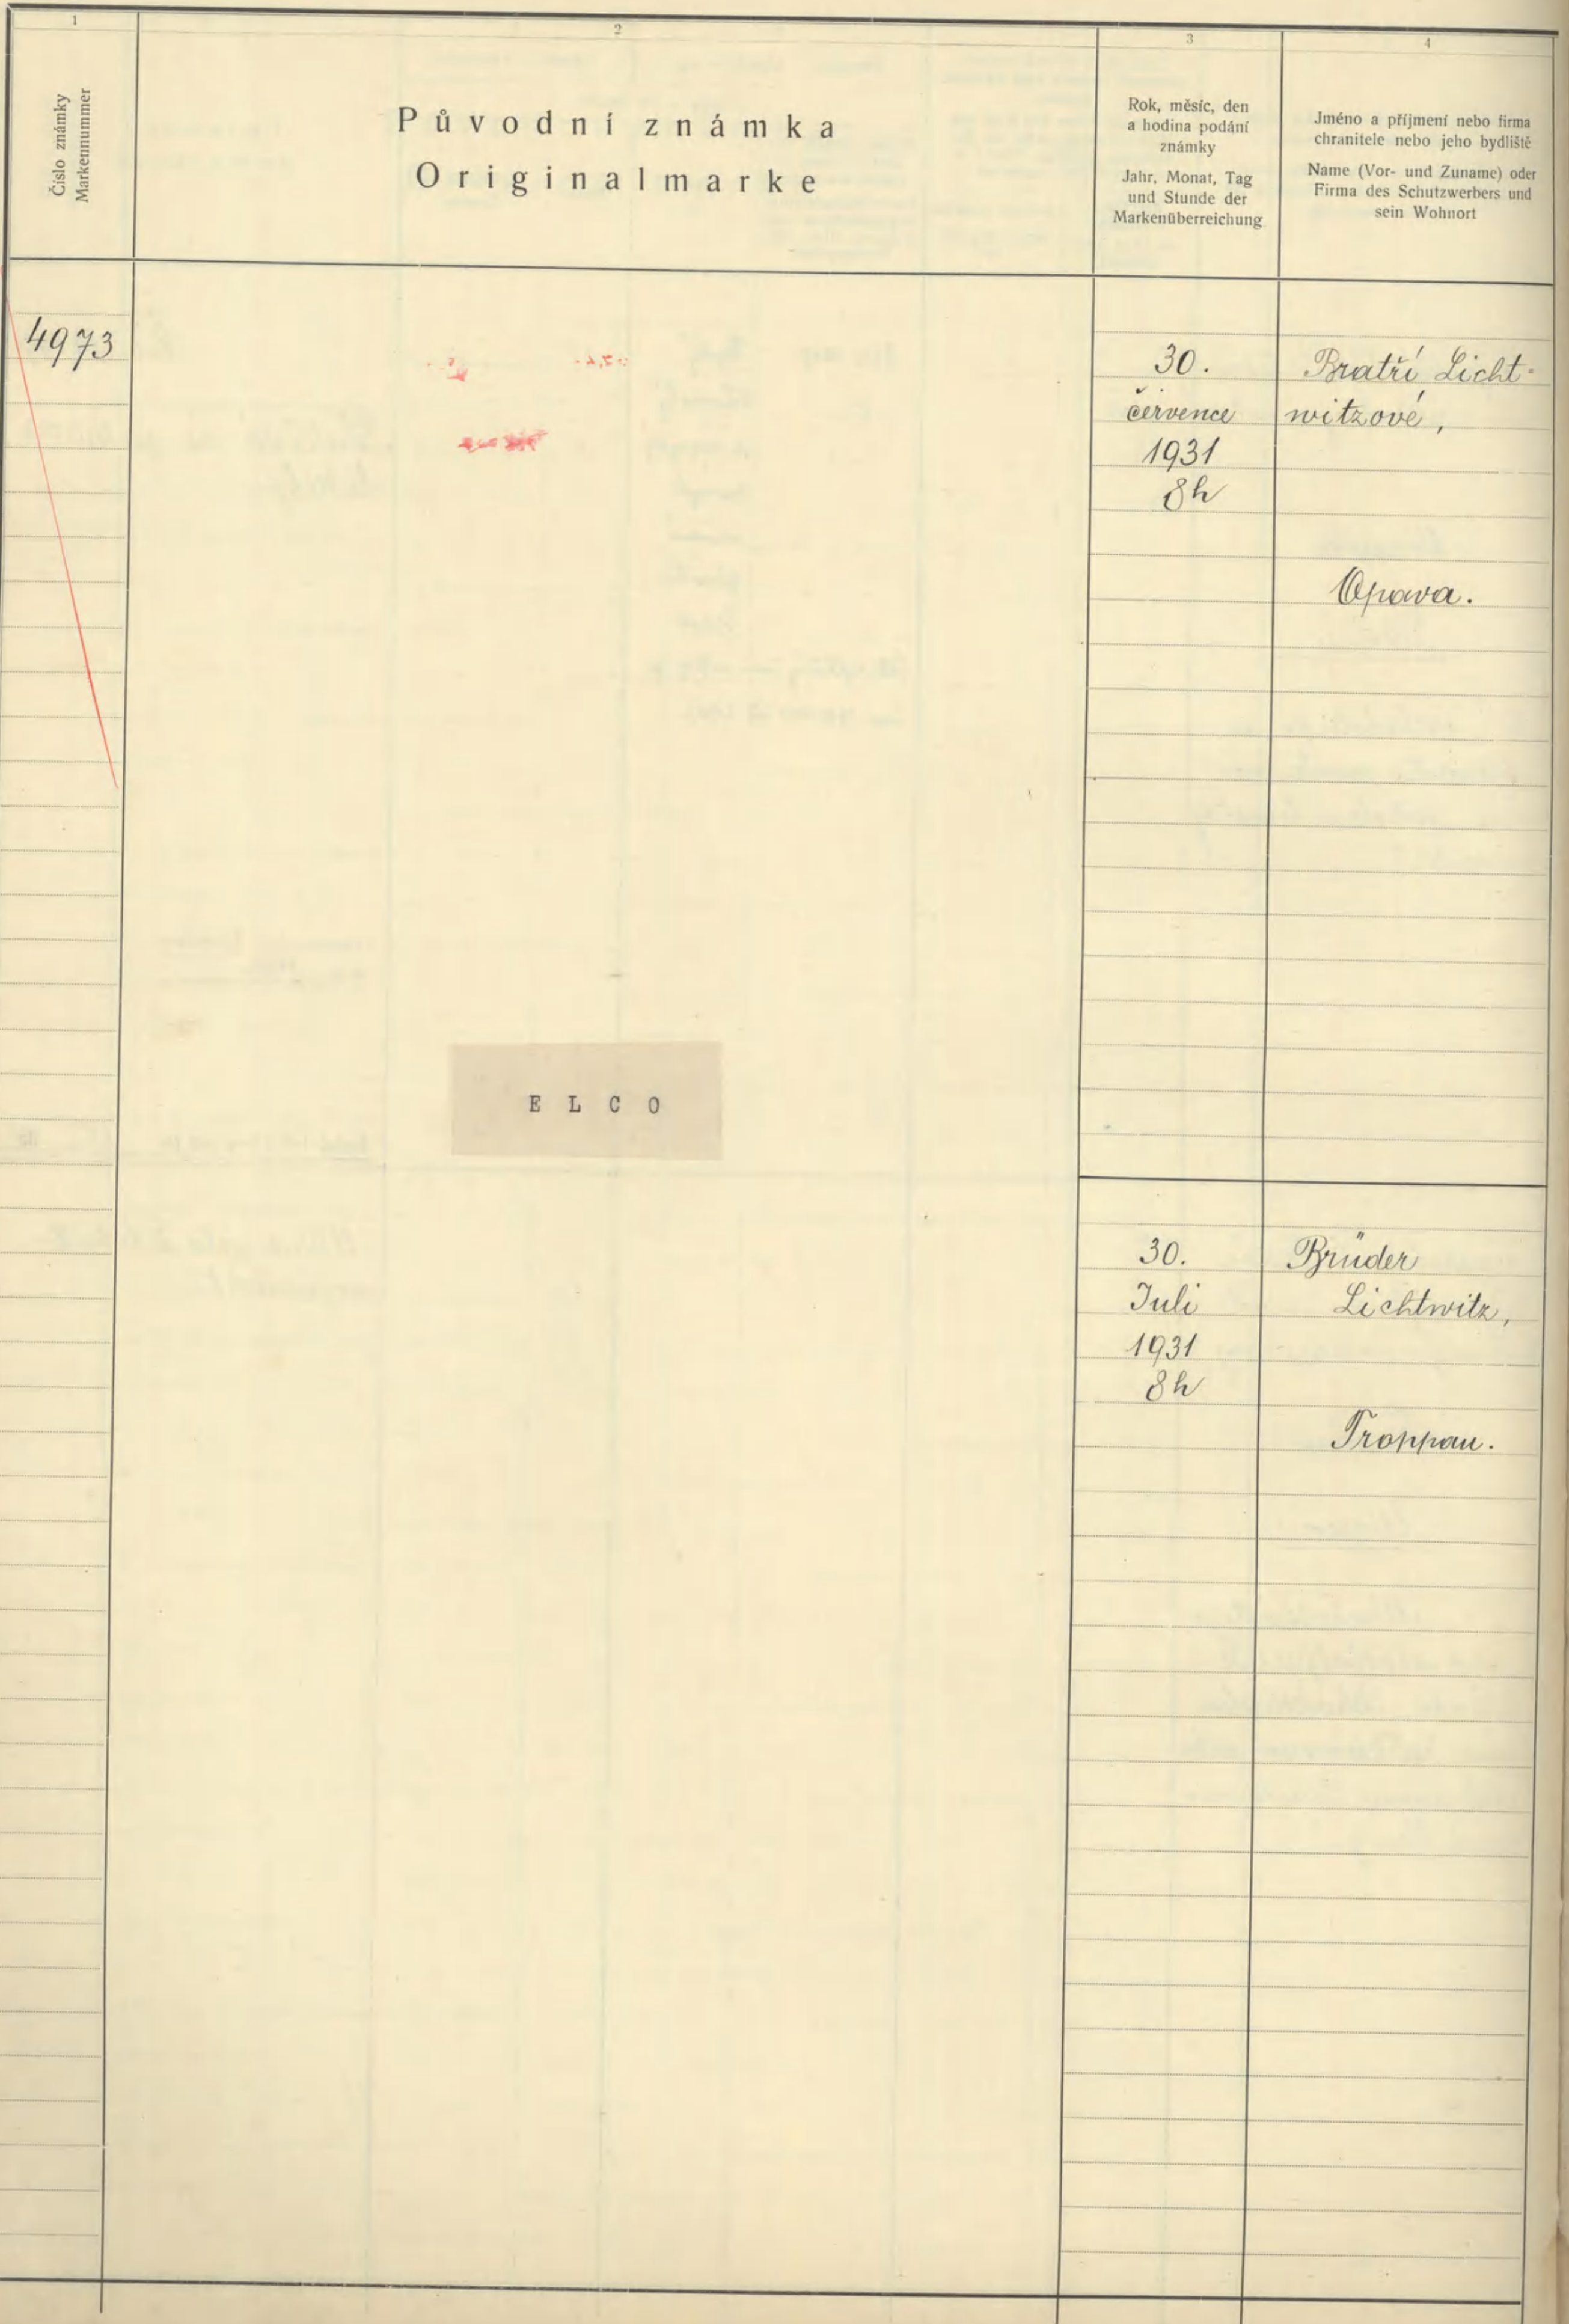 1
2
3
4
Číslo známky
Markennummer
Původní známka
Originalmarke
Rok, měsíc, den
a hodina podání
známky
Jahr, Monat, Tag
und Stunde der
Markenüberreichung
Jméno a příjmení nebo firma
chranitele nebo jeho bydliště
Name (Vor- und Zuname) oder
Firma des Schutzwerbers und
sein Wohnort
4973
30.
července
1931
8h
Bratří Licht-
witzové,
Opava.
E L C O
30.
Juli
1931
8h
Brüder
Lichtwitz,
Troppau.